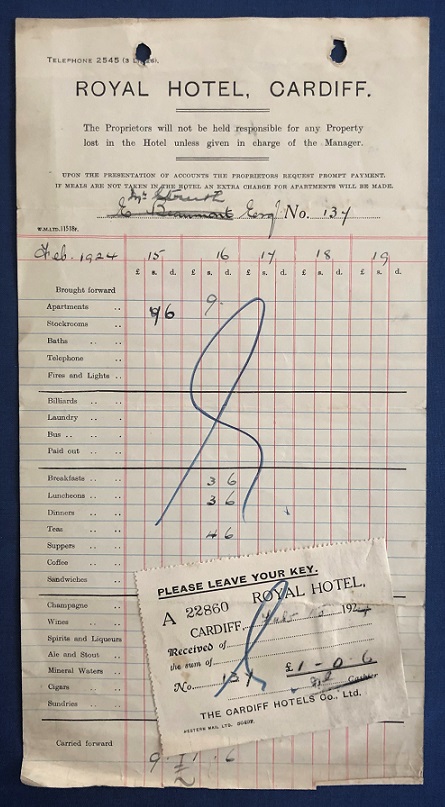 TELEPHONE 2545 (3 LINES).
ROYAL HOTEL, CARDIFF.
The Proprietors will not be held responsible for any Property
lost in the Hotel unless given in charge of the Manager.
UPON THE PRESENTATION OF ACCOUNTS THE PROPRIETORS REQUEST PROMPT PAYMENT.
IF MEALS ARE NOT TAKEN IN THE HOTEL AN EXTRA CHARGE FOR APARTMENTS WILL BE MADE.
E Beaumont Esq No. 137
W.M.LTD.
Feb. 1924 15 16 17 18 19
£ s. d. £ s. d. £ s. d. £ s. d. £ s. d.
Brought forward
Apartments .. 9
Stockrooms ..
Baths .. ..
Telephone ..
Fires and Lights ..
Billiards .. ..
Laundry .. ..
Bus .. .. ..
Paid out .. ..
Breakfasts .. .. 3 6
Luncheons .. .. 3 6
Dinners .. ..
Teas .. .. 4 6
Suppers .. ..
Coffee .. ..
Sandwiches ..
Champagne ..
Wines .. ..
Spirits and Liqueurs
Ale and Stout ..
Mineral Waters ..
Cigars .. ..
Sundries .. ..
Carried forward
PLEASE LEAVE YOUR KEY.
A 22860 ROYAL HOTEL,
CARDIFF, Feb 15 1924
Received of
the sum of
No. 137 £1-0-6
Cashier
THE CARDIFF HOTELS Co., Ltd.
WESTERN MAIL LTD.